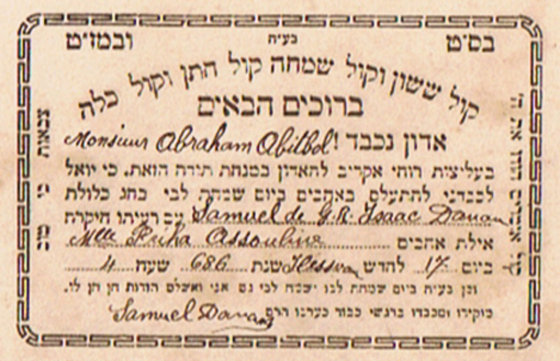 בס״ט בע״ח ובמז״ט
קול ששון וקול שמחה קול חתן וקול כלה
ברוכים הבאים
אדון נכבד! Monsieur Abraham Abitbol
בעליצות רוחי אקריב להאדון במנחת תודה הזאת, כי יואל
לכבדני להתעלס באהבים ביום שמחת לבי בחג כלולת
Samuel de G.R. Isaac Danan עם רעיתו היקרת
אילת אהבים Mlle Friha Assouline
ביום 17 לחדש Hessvan שנת 686 שעה 4
וכן בע״ה ביום שמחת לבו ישמח לבי גם אני ואשלם תודות הן הן לו.
מוקירו ומכבדו ברגשי כבוד כערכו הרם
Samuel Danan
צבאות כי טוב